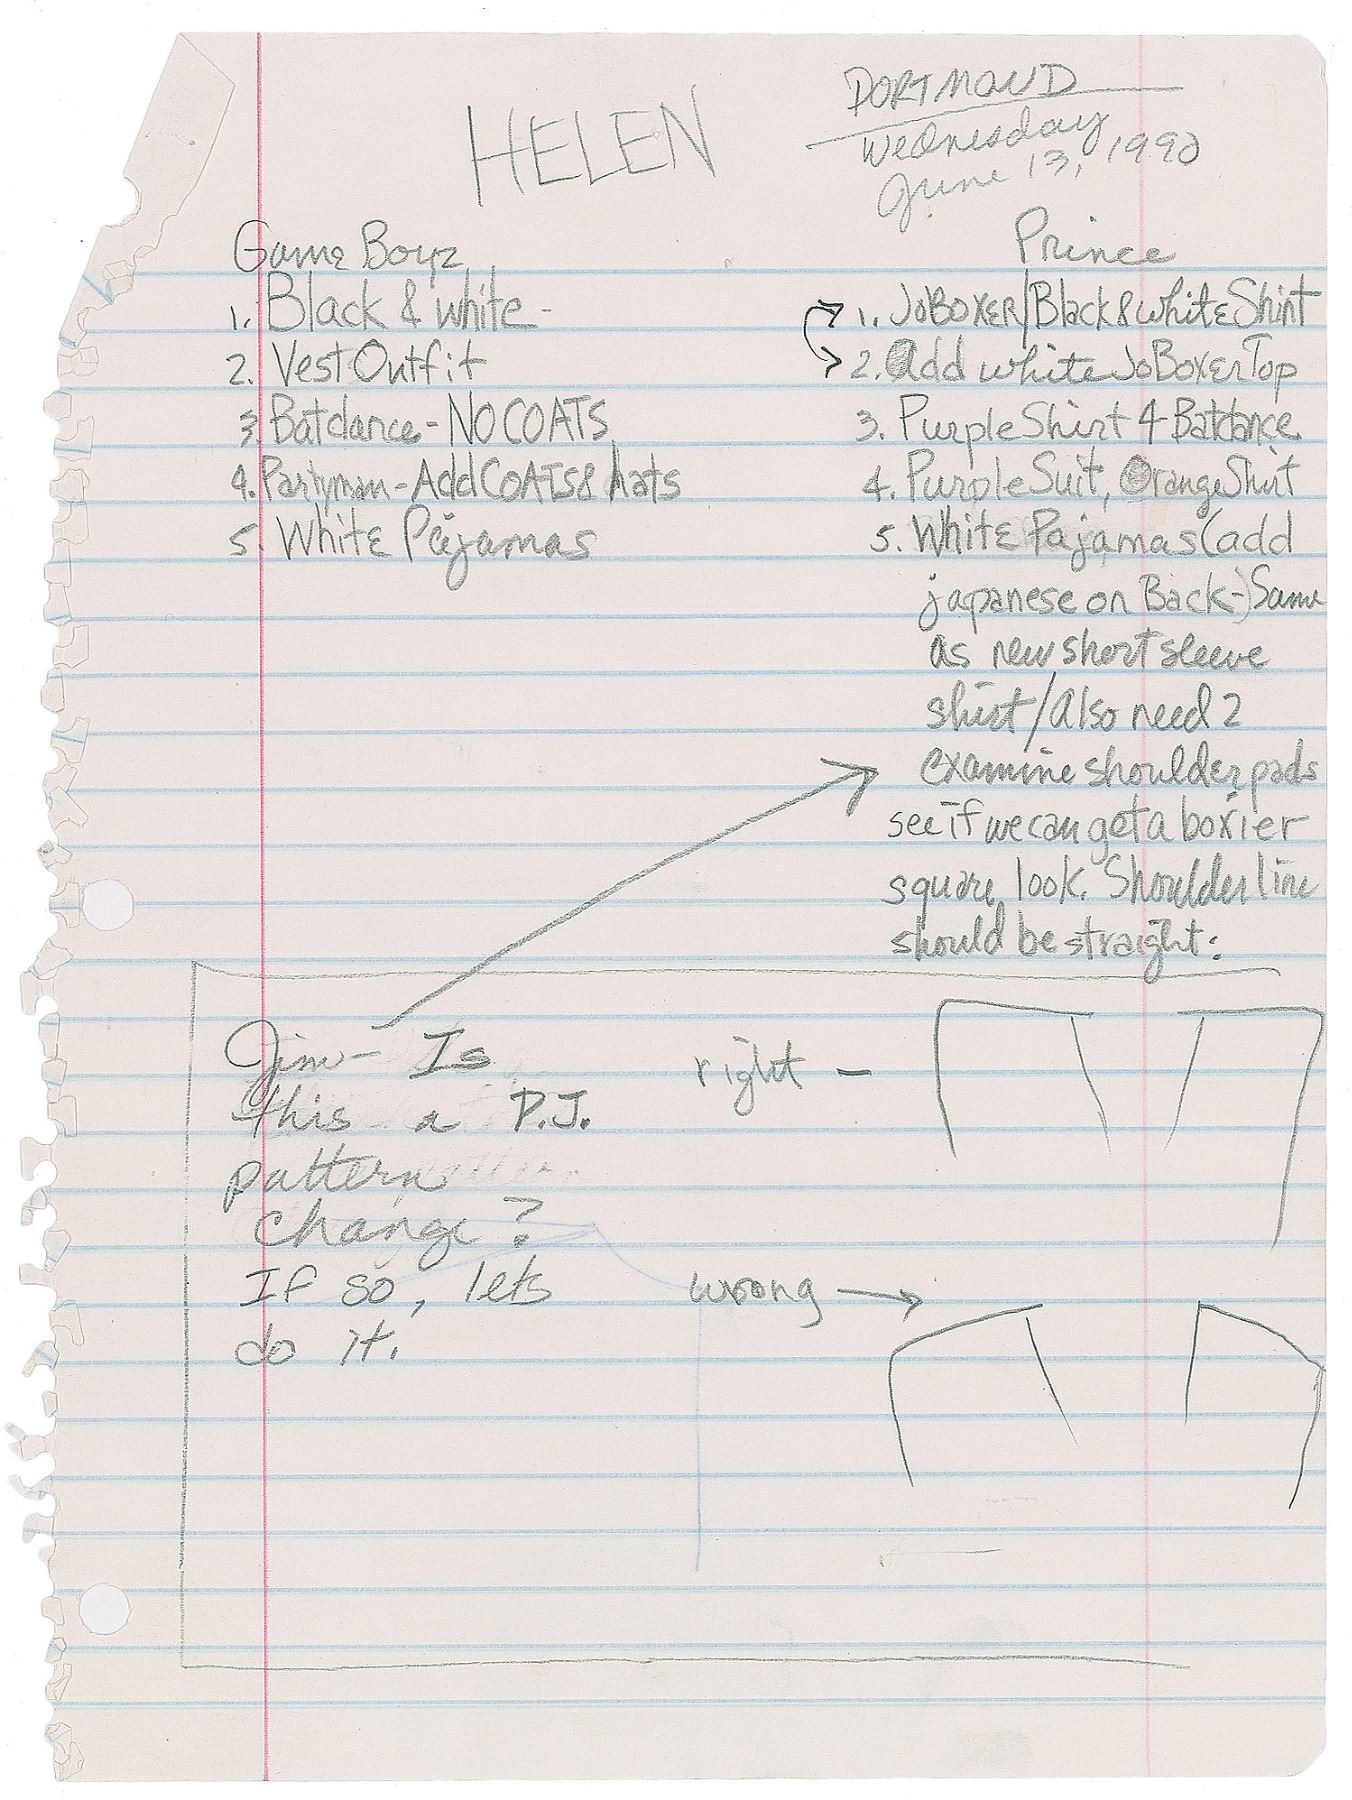 HELEN
DORTMOUND
Wednesday
June 13, 1990
Game Boyz
1. Black & white -
2. Vest Outfit
3. Batdance - NO COATS
4. Partyman - Add COATS & hats
5. White Pajamas
Prince
1. JoBOXER/Black & white Shirt
2. Add white JoBoxer Top
3. Purple Shirt 4 Batdance
4. Purple Suit, Orange Shirt
5. White Pajamas (add
japanese on Back-) Same
as new short sleeve
shirt / Also need 2
examine shoulder pads
see if we can get a boxier
square look. Shoulder line
should be straight:
Jim - Is
this a P.J.
pattern
change?
If so, lets
do it.
right -
wrong